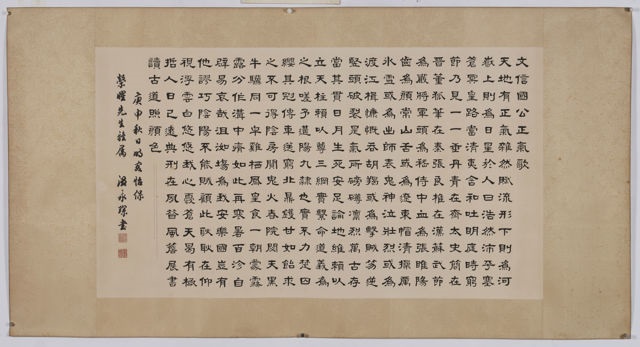 文信國公正氣歌
天地有正氣雜然賦流形下則為河
嶽上則為日星於人曰浩然沛乎塞
蒼冥皇路當清夷含和吐明庭時窮
節乃見一一垂丹青在齊太史簡在
晉董狐筆在秦張良椎在漢蘇武節
為嚴將軍頭為嵇侍中血為張睢陽
齒為顏常山舌或為遼東帽清操厲
冰雪或為出師表鬼神泣壯烈或為
渡江楫慷慨吞胡羯或為擊賊笏逆
豎頭破裂是氣所磅礴凜烈萬古存
當其貫日月生死安足論地維賴以
立天柱賴以尊三綱實繫命道義為
之根嗟予遘陽九隸也實不力楚囚
纓其冠傳車送窮北鼎鑊甘如飴求
之不可得陰房闃鬼火春院閟天黑
牛驥同一皁雞棲鳳皇食一朝蒙霧
露分作溝中瘠如此再寒暑百沴自
辟易哀哉沮洳場為我安樂國豈有
他謬巧陰陽不能賊顧此耿耿在仰
視浮雲白悠悠我心悲蒼天曷有極
哲人日已遠典刑在夙昔風簷展書
讀古道照顏色
庚申秋日時客
先生雅屬 溫永琛書